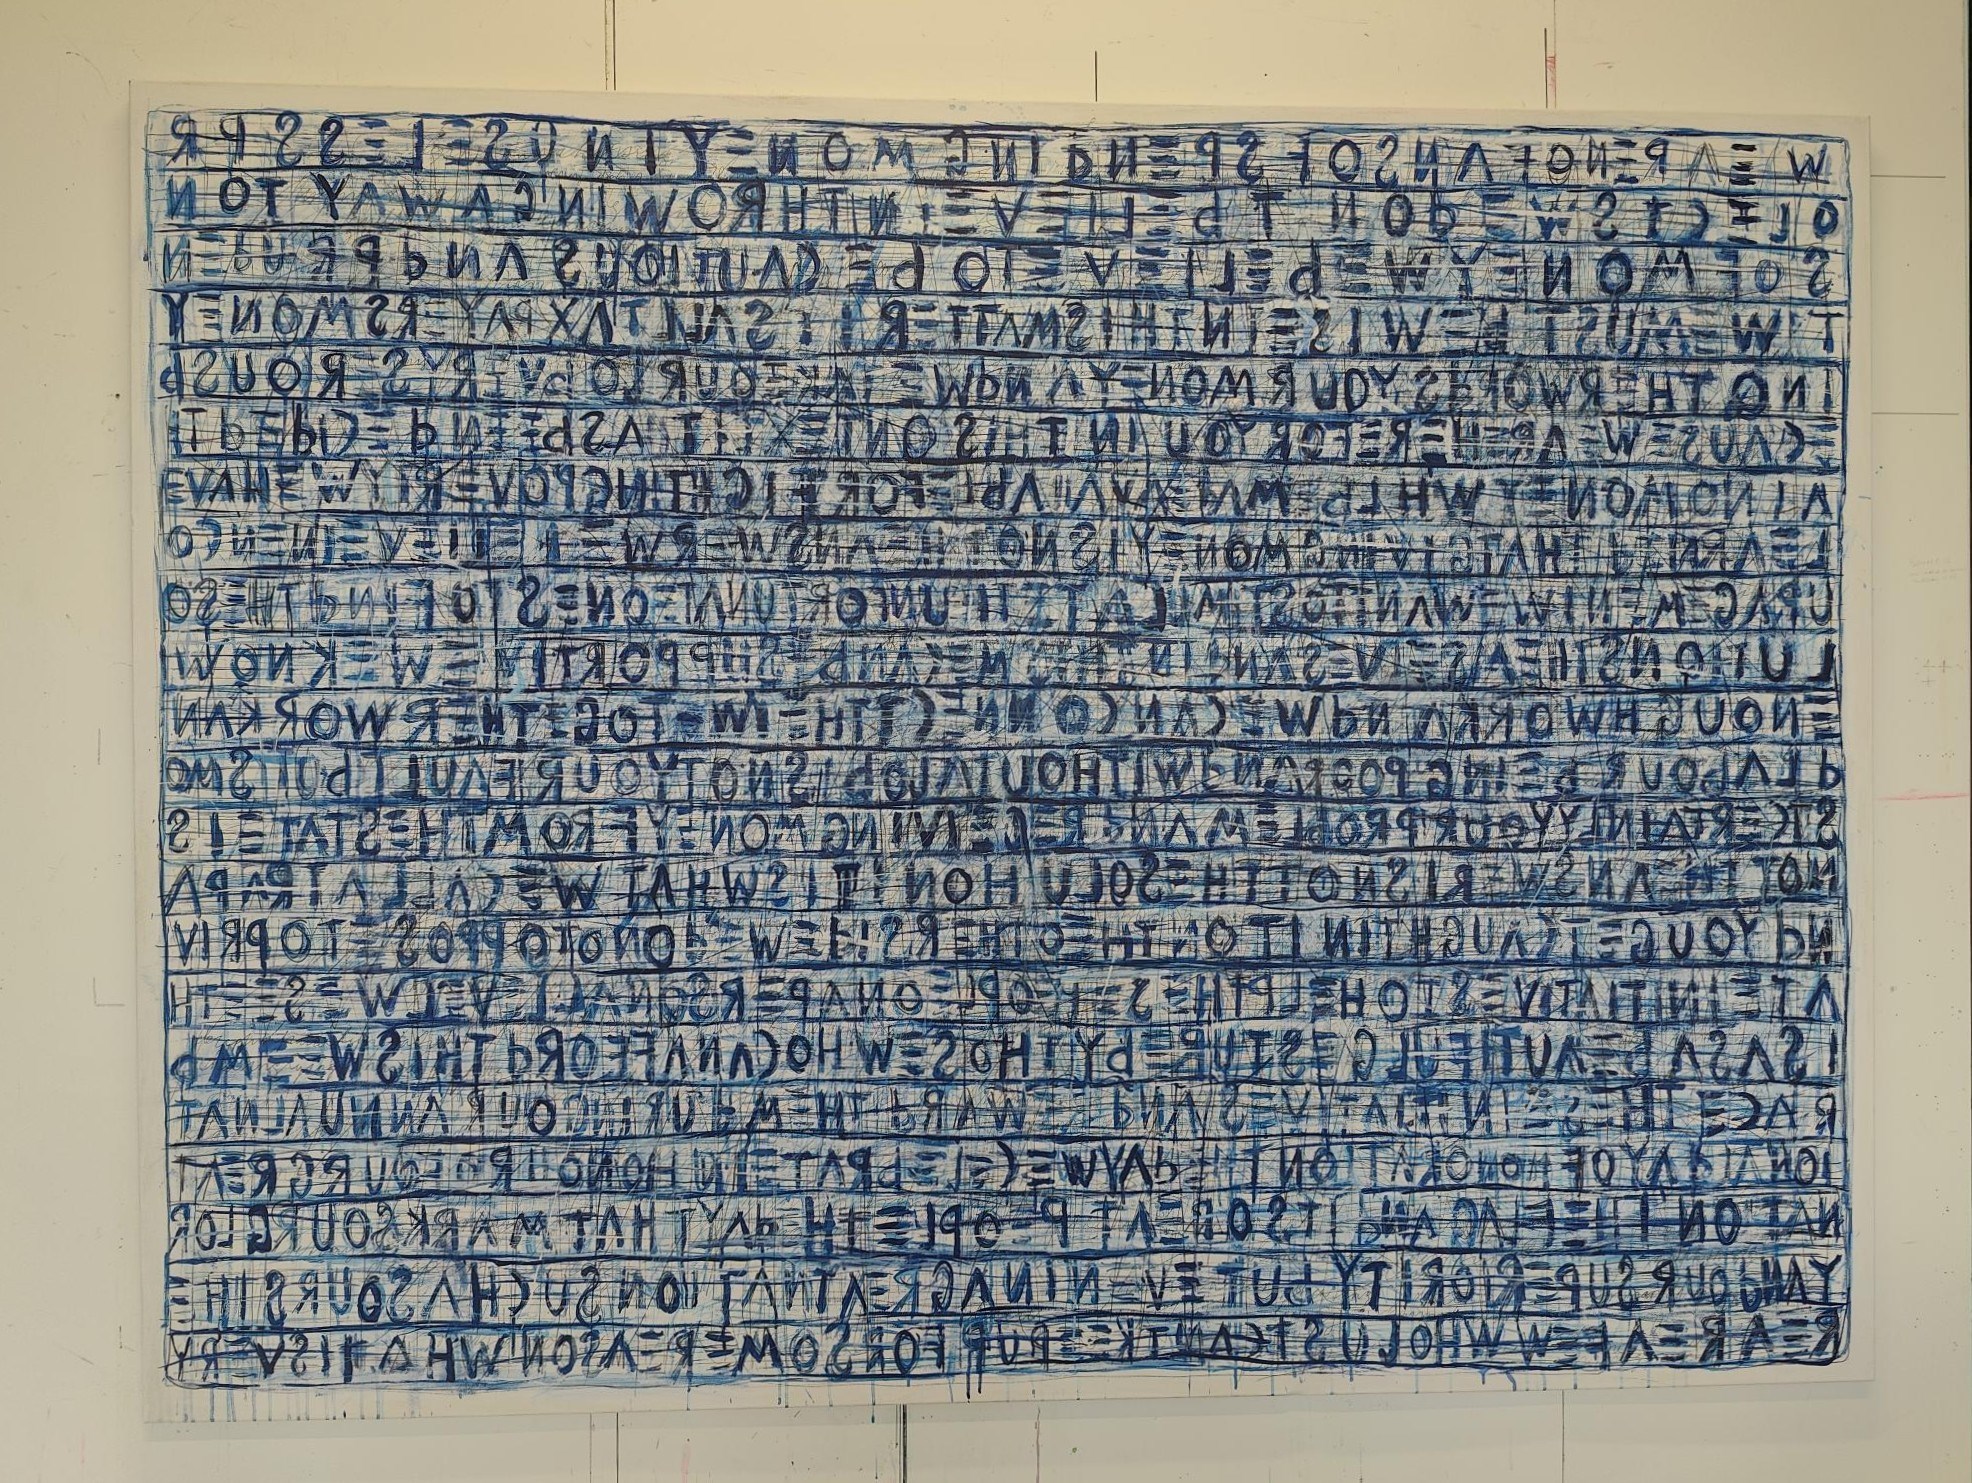 WE ARE NOT FANS OF SPENDING MONEY IN USELESS PR
OJECTS WE DON'T BELIEVE IN THROWING AWAY TON
S OF MONEY WE BELIEVE TO BE CAUTIOUS AND PRUDEN
T WE MUST BE WISE IN THIS MATTER IT IS ALL TAXPAYERS MONEY
IN OTHER WORDS YOUR MONEY AND WE TAKE OUR JOB VERY SERIOUS B
ECAUSE WE ARE HERE FOR YOU IN THIS CONTEXT IT AS BEEN DECIDED TH
AT NO MONEY WILL BE MADE AVAILABLE FOR FIGHTING POVERTY WE HAVE
LEARNED THAT GIVING MONEY IS NOT THE ANSWER WE BELIEVE IN ENCO
URAGEMENT WE WANT TO STIMULATE THE UNFORTUNATE ONES TO FIND THE SO
LUTIONS THEMSELVES AND IN CAN BE SUPPORTIVE WE KNOW
ENOUGH WORK AND WE CAN CONNECT THEM TOGETHER WORK AN
D LABOUR BEING POOR AND WITHOUT A JOB IS NOT YOUR FAULT BUT IS MO
ST CERTAINLY YOUR PROBLEM AND RECEIVING MONEY FROM THE STATE IS
NOT THE ANSWER IS NOT THE SOLUTION IT IS WHAT WE CALL A TRAP A
ND YOU GET CAUGHT IN IT ON THE OTHER SIDE WE DO NOT OPPOSE TO PRIV
ATE INITIATIVES TO HELP THESE PEOPLE ON A PERSONAL LEVEL WE SEE TH
IS AS A BEAUTIFUL GESTURE BY THOSE WHO CAN AFFORD THIS WE EMB
RACE THESE INITIATIVES AND REWARD THEM DURING OUR ANNUAL NAT
IONAL DAY OF HONORATION THE DAY WE CELEBRATE IN HONOUR OF OUR GREAT
NATION THE FLAG AND ITS GREAT PEOPLE THE DAY THAT MARKS OUR GLOR
Y AND OUR SUPERIORITY BUT EVEN IN A GREAT NATION SUCH AS OURS THE
RE ARE A FEW WHO JUST CAN'T KEEP UP FOR SOME REASON WHAT IS VERY